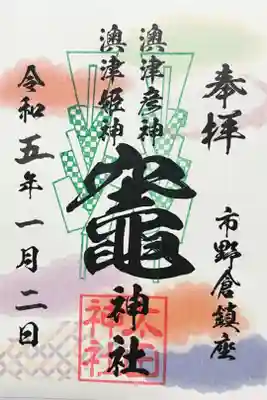 奉拝
市野倉鎮座
澳津彦神
澳津姫神
竈神社
太田
神社
令和五年一月二日